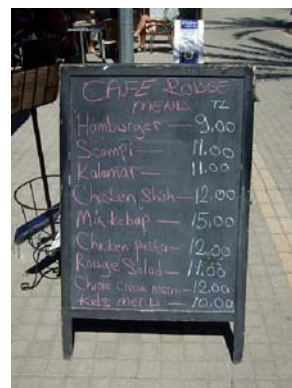 CAFE ROUGE
MENU TL
Hamburger — 9,00
Scampi — 11.00
Kalamar — 11.00
Chicken Shish — 12,00
Mix kebap — 15,00
Chicken pasta — 12,00
Rouge Salad — 11.00
Cream — 12.00
kids menu — 10.00